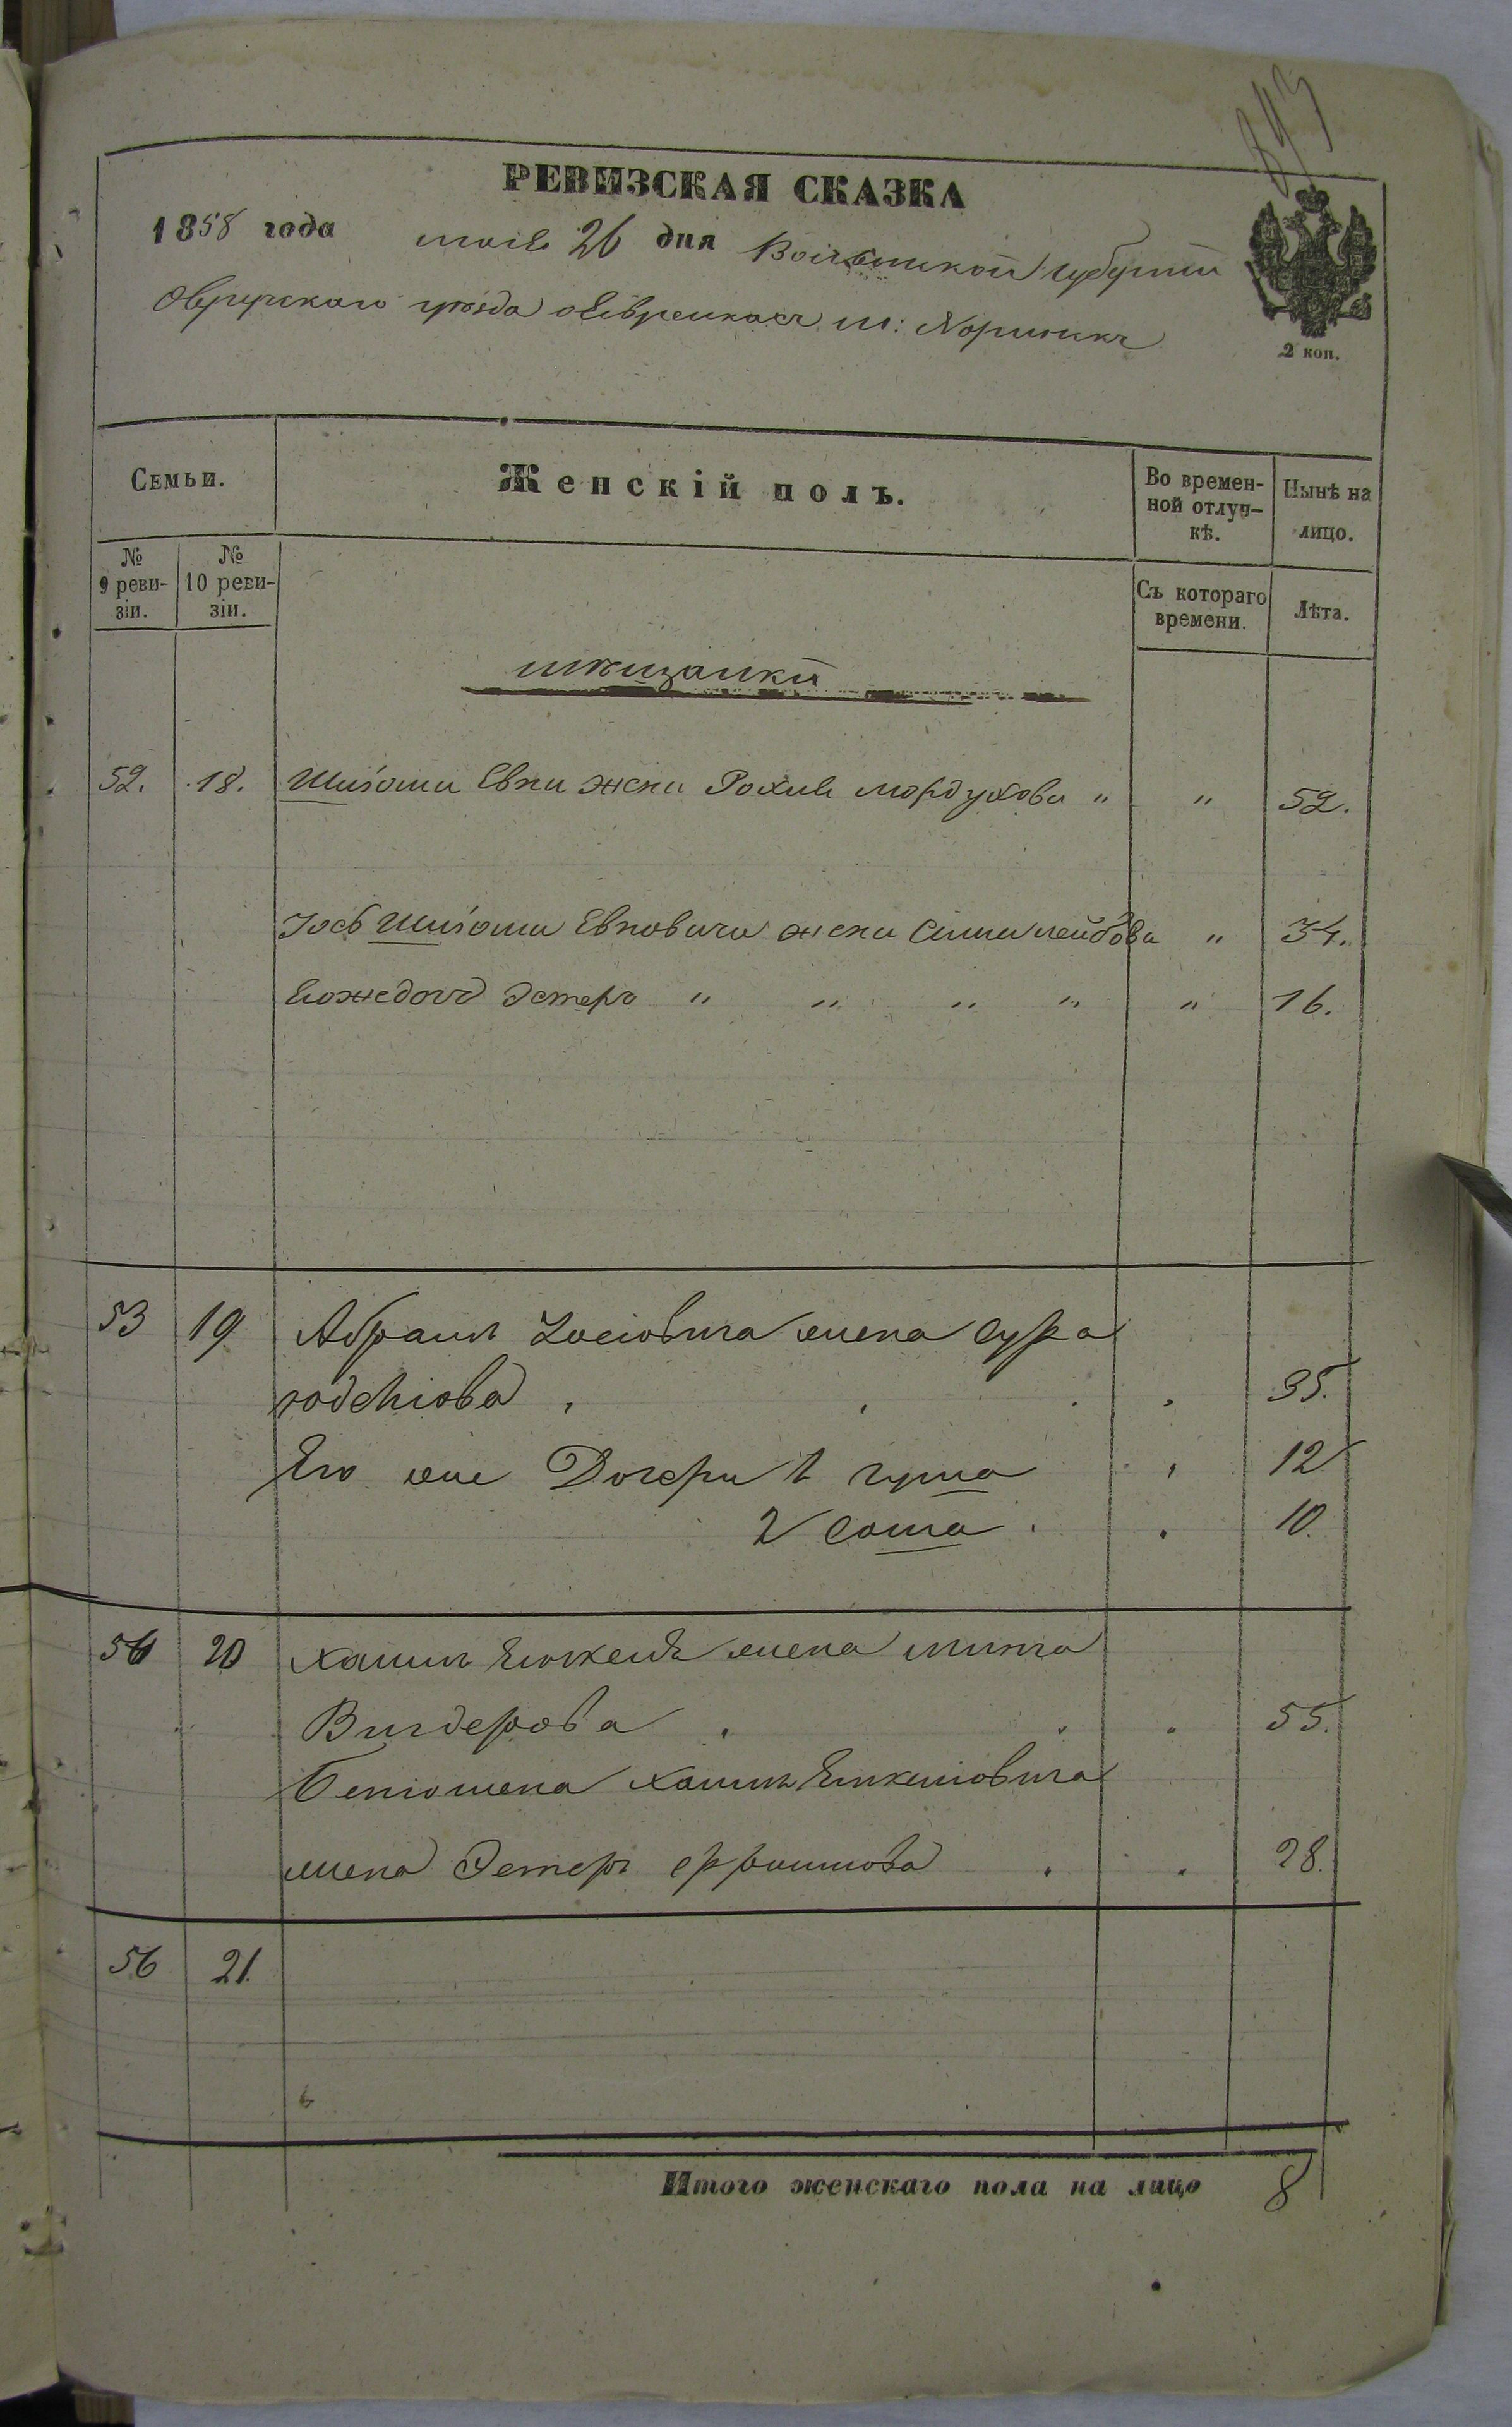 РЕВИЗСКАЯ СКАЗКА
1858 года мая 26 дня Волынской губернии
Овручского уѣзда о Еврейкахъ м: Норинскъ
2 коп.
Семьи.
Женскій полъ.
Во времен-
ной отлуч-
кѣ.
Нынѣ на
лицо.
№
9 реви-
зіи.
№
10 реви-
зіи.
Съ котораго
времени.
Лѣта.
мѣщанки
52. 18. Евны жена Рохля Мордухова " " 52.
Іось Евновича жена Сима Лейбова " 34.
Его же дочь Эстеръ " " " " " 16.
53 19 Абрамъ Іосіовича жена Сура
35.
Его же Дочери 1 12
2 Сома 10.
20 Хаимъ жена
Вигдерова 55.
Хаимъ
жена Эстеръ 28.
56 21.
Итого женскаго пола на лицо 8